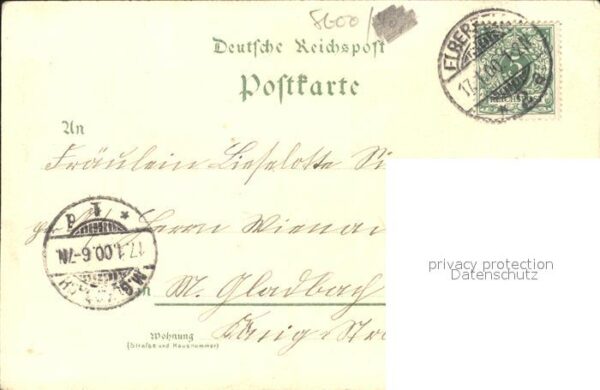 8600
Deutsche Reichspost
Postkarte
An
Fräulein Lieselotte
Herrn
M. Gladbach
Wohnung
(Straße und Hausnummer)
ELBERF
17.1.00.
* 1 d
17.1.00.6-7N.
privacy protection
Datenschutz